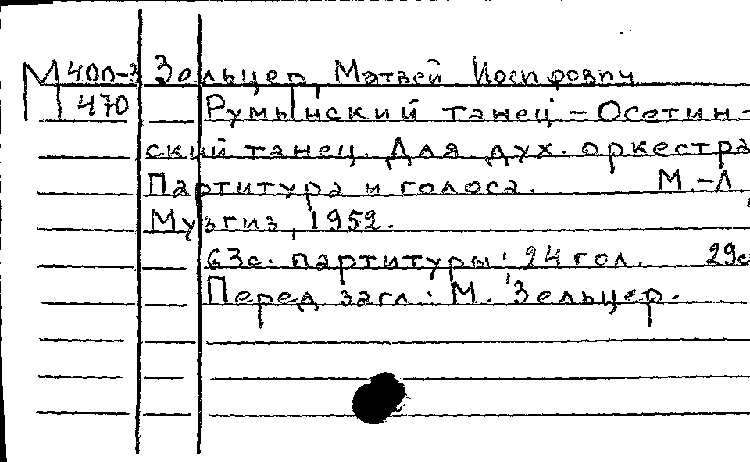 М 400-3 Зольцер, Матвей Иосифович
470 Румынский танец – Осетин-
ский танец. Для дух. оркестра
Партитура и голоса. М.-Л,
Музгиз, 1952.
63с. партитуры; 24 гол. 29с
Перед загл.: М. Зельцер.